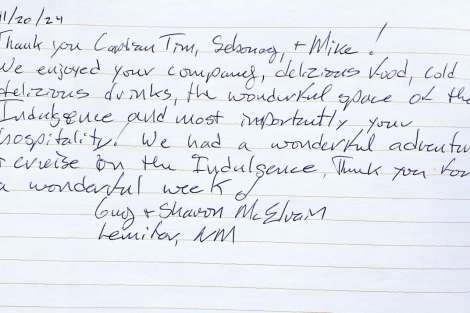 11/20/24
Thank you Captain Tim, Sebonag, + Mike!
We enjoyed your company, delizious food, cold
delizious drinks, the wonderful space of the
Indulgence and most importantly your
hospitality! We had a wonderful adventur
+ cruise on the Indulgence, Thank you for
a wonderful week!
Guy + Sharon McElvain
Lemitar, NM